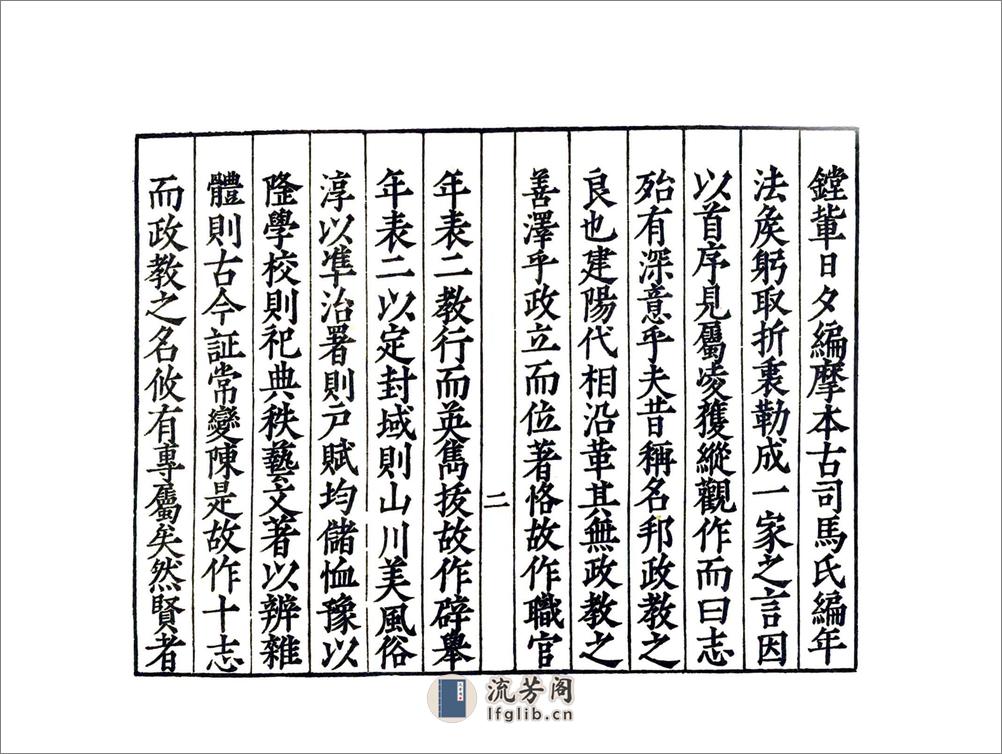 鏜輩日夕編摩本古司馬氏編年
法矦躬取折衷勒成一家之言因
以首序見屬凌獲縱觀作而曰志
殆有深意乎夫昔稱名邦政教之
良也建陽代相沿革其無政教之
善澤乎政立而位著恪故作職官
二
年表二教行而英雋拔故作辟舉
年表二以定封域則山川美風俗
淳以準治署則戶賦均儲恤豫以
隆學校則祀典秩藝文著以辨雜
體則古今証常變陳是故作十志
而政教之名攸有專屬矣然賢者
流芳阁
lfglib.cn